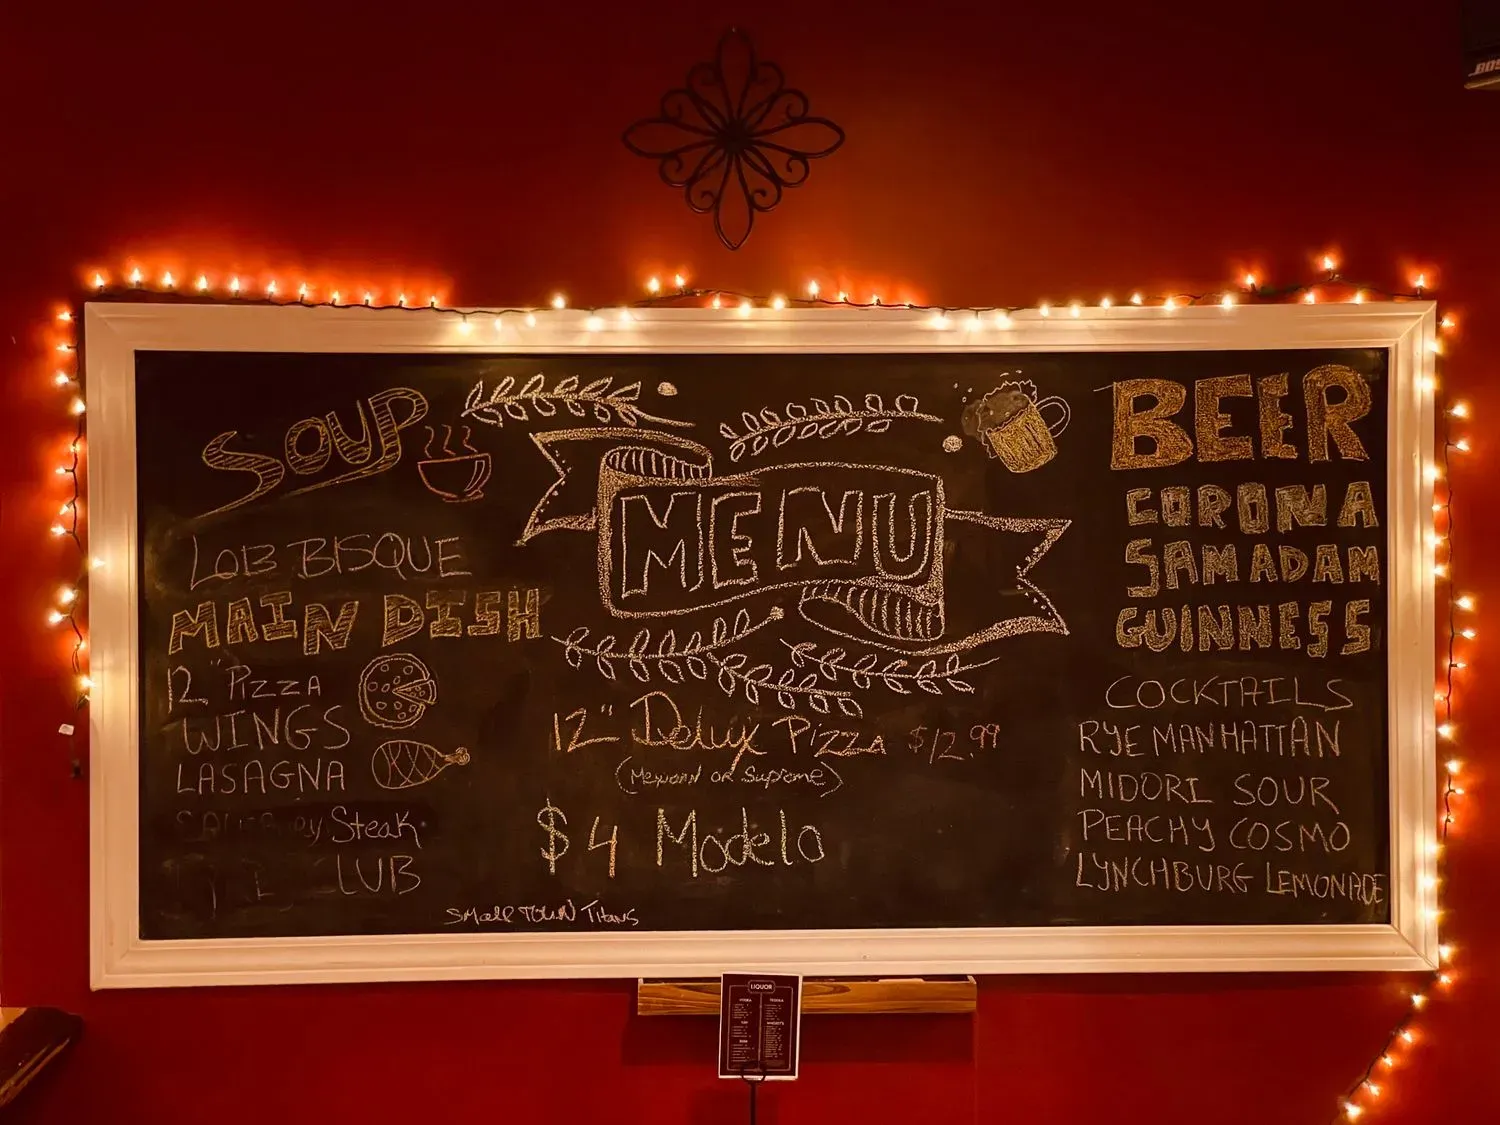 SOUP
LOB BISQUE
MAIN DISH
12" PIZZA
WINGS
LASAGNA
Steak
LUB
MENU
12" Delux PIZZA $12.99
(Mexican or Supreme)
$4 Modelo
Small Town Titans
BEER
CORONA
SAM ADAM
GUINNESS
COCKTAILS
RYE MANHATTAN
MIDORI SOUR
PEACHY COSMO
LYNCHBURG LEMONADE
LIQUOR
BOSE